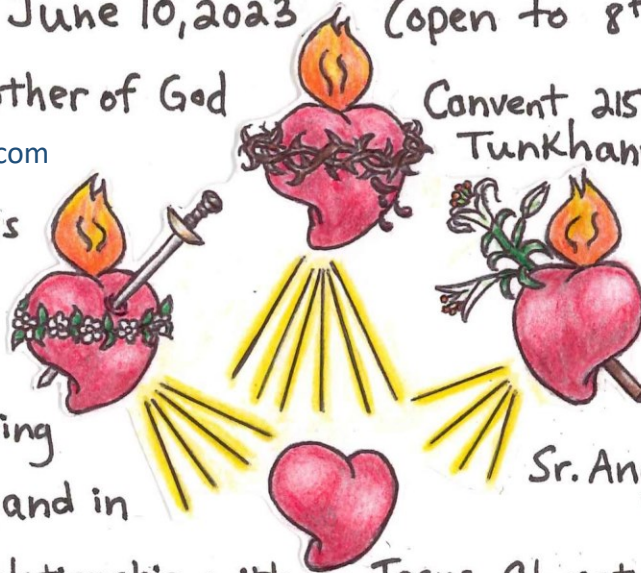 June 10, 2023 (open to 8th
other of God Convent 215
.com Tunkhan
s
ing
and in Sr. An